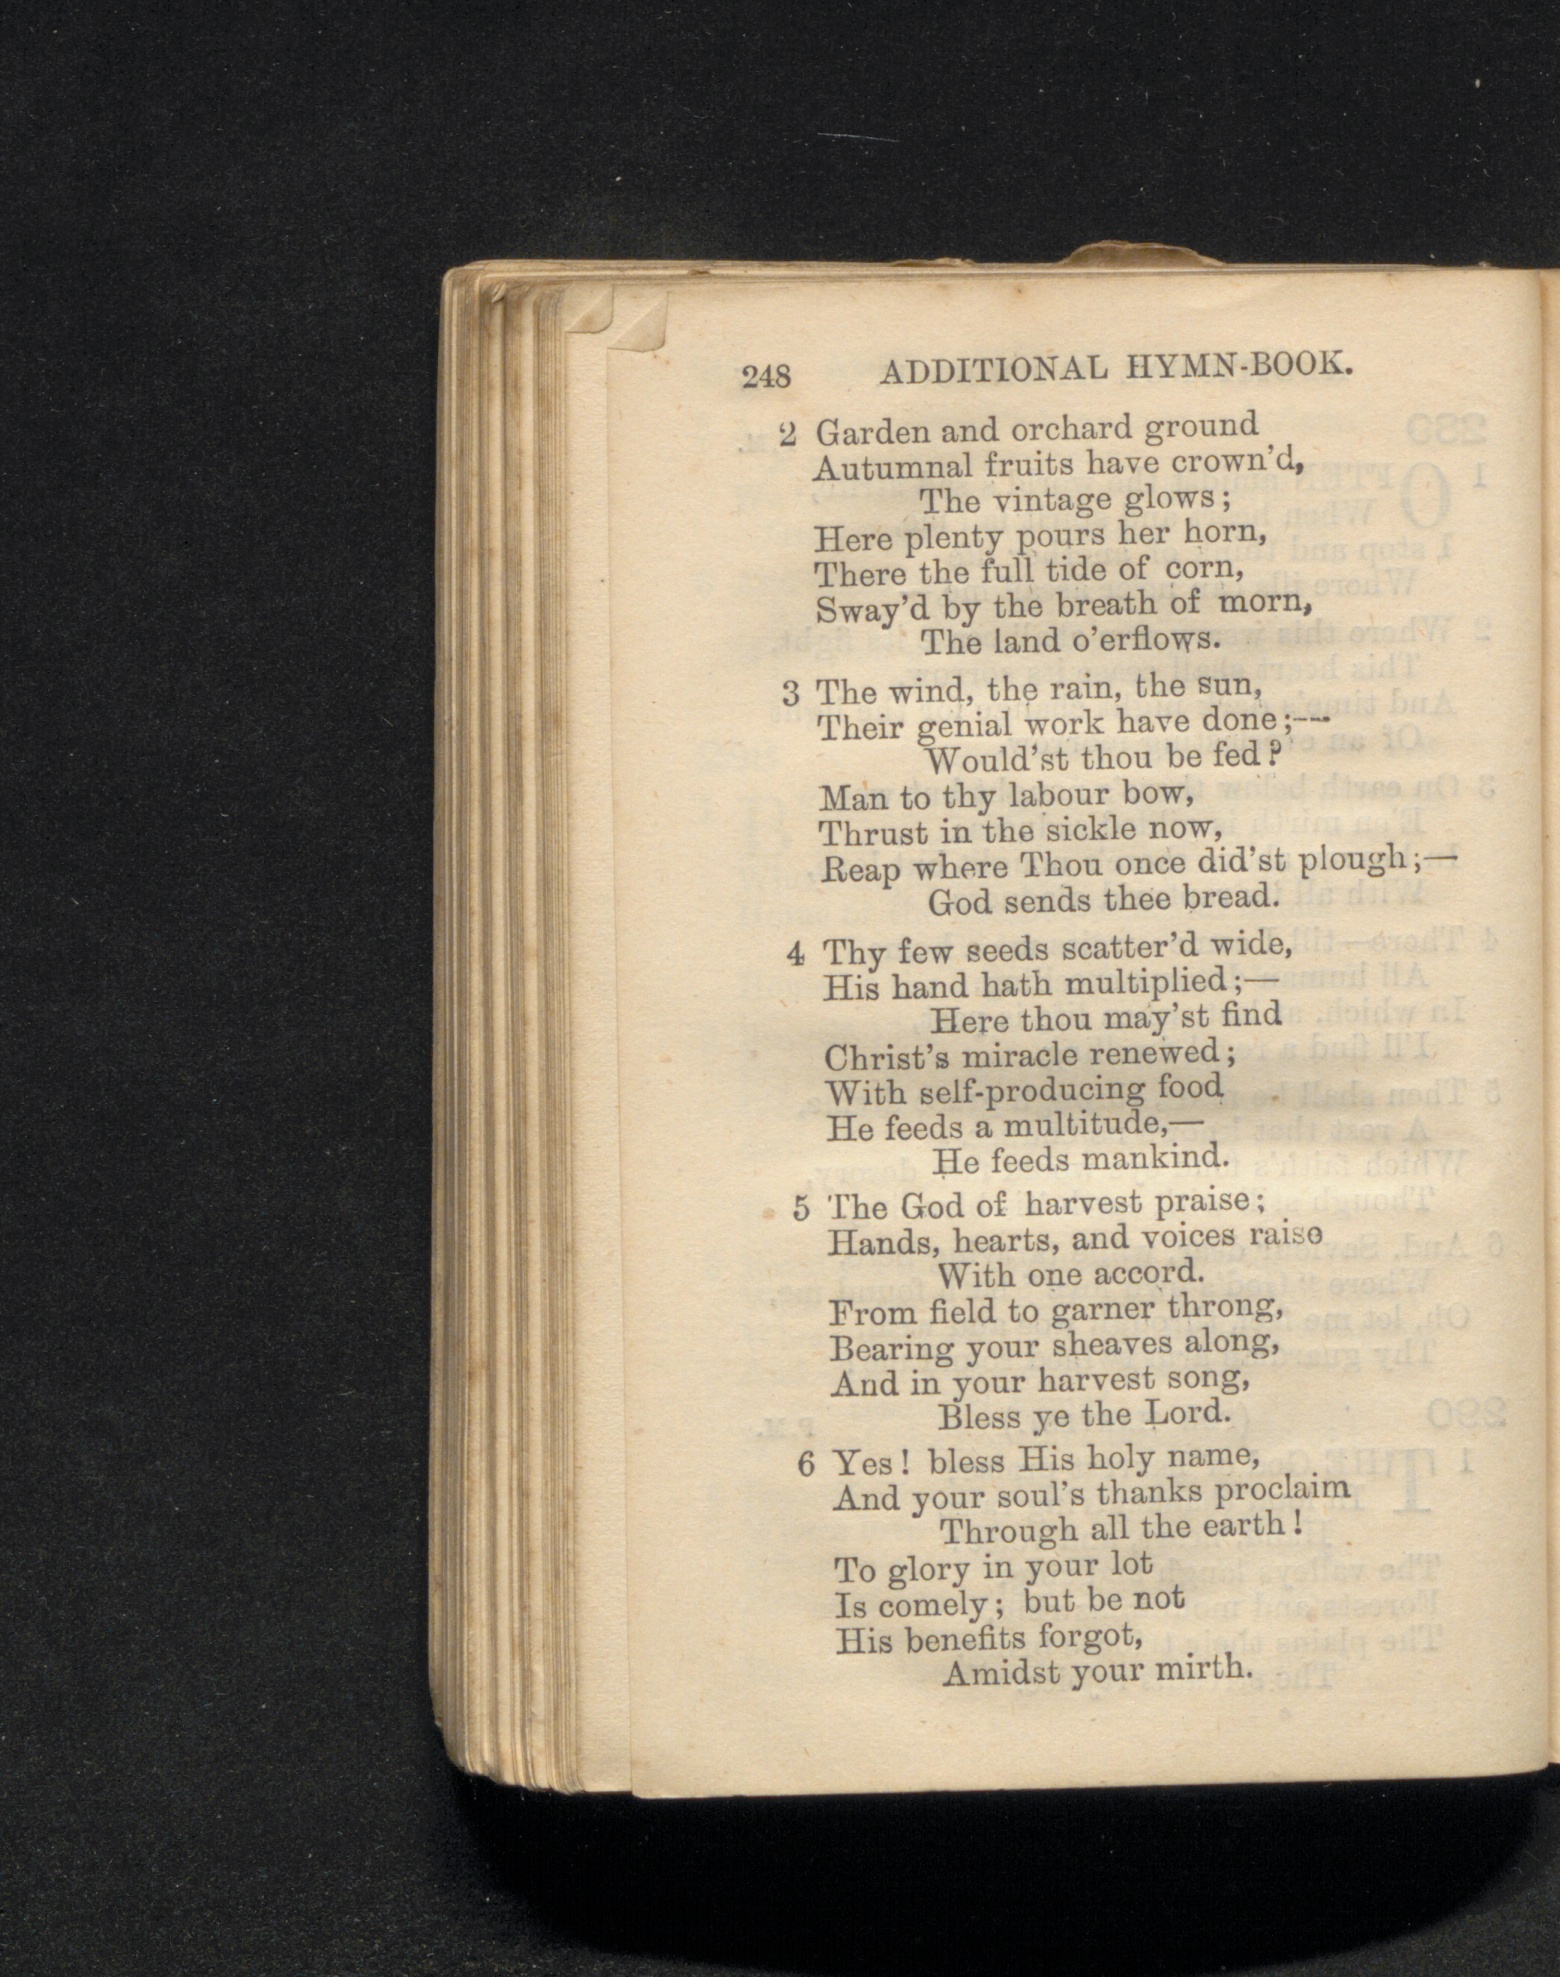 248 ADDITIONAL HYMN-BOOK.
2 Garden and orchard ground
Autumnal fruits have crown'd,
The vintage glows;
Here plenty pours her horn,
There the full tide of corn,
Sway'd by the breath of morn,
The land o'erflows.
3 The wind, the rain, the sun,
Their genial work have done;—
Would'st thou be fed?
Man to thy labour bow,
Thrust in the sickle now,
Reap where Thou once did'st plough;—
God sends thee bread.
4 Thy few seeds scatter'd wide,
His hand hath multiplied;—
Here thou may'st find
Christ's miracle renewed;
With self-producing food
He feeds a multitude,—
He feeds mankind.
5 The God of harvest praise;
Hands, hearts, and voices raise
With one accord.
From field to garner throng,
Bearing your sheaves along,
And in your harvest song,
Bless ye the Lord.
6 Yes! bless His holy name,
And your soul's thanks proclaim
Through all the earth!
To glory in your lot
Is comely; but be not
His benefits forgot,
Amidst your mirth.